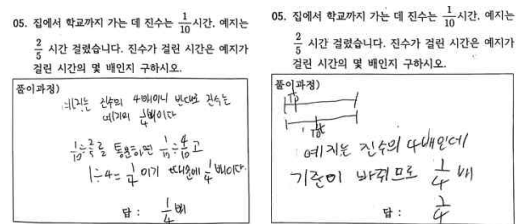 05. 집에서 학교까지 가는 데 진수는 1/10시간, 예지는
2/5 시간 걸렸습니다. 진수가 걸린 시간은 예지가
걸린 시간의 몇 배인지 구하시오.
풀이과정)
예지는 진수의 4배이니 반대로 진수는
예지의 1/4배이다
1/10÷2/5를 통분하면 1/10÷4/10고
1÷4=1/4이기 때문에 1/4배이다.
답 : 1/4배
05. 집에서 학교까지 가는 데 진수는 1/10시간, 예지는
2/5 시간 걸렸습니다. 진수가 걸린 시간은 예지가
걸린 시간의 몇 배인지 구하시오.
풀이과정)
예지는 진수의 4배인데
기준이 바뀌므로 1/4 배
답 : 1/4